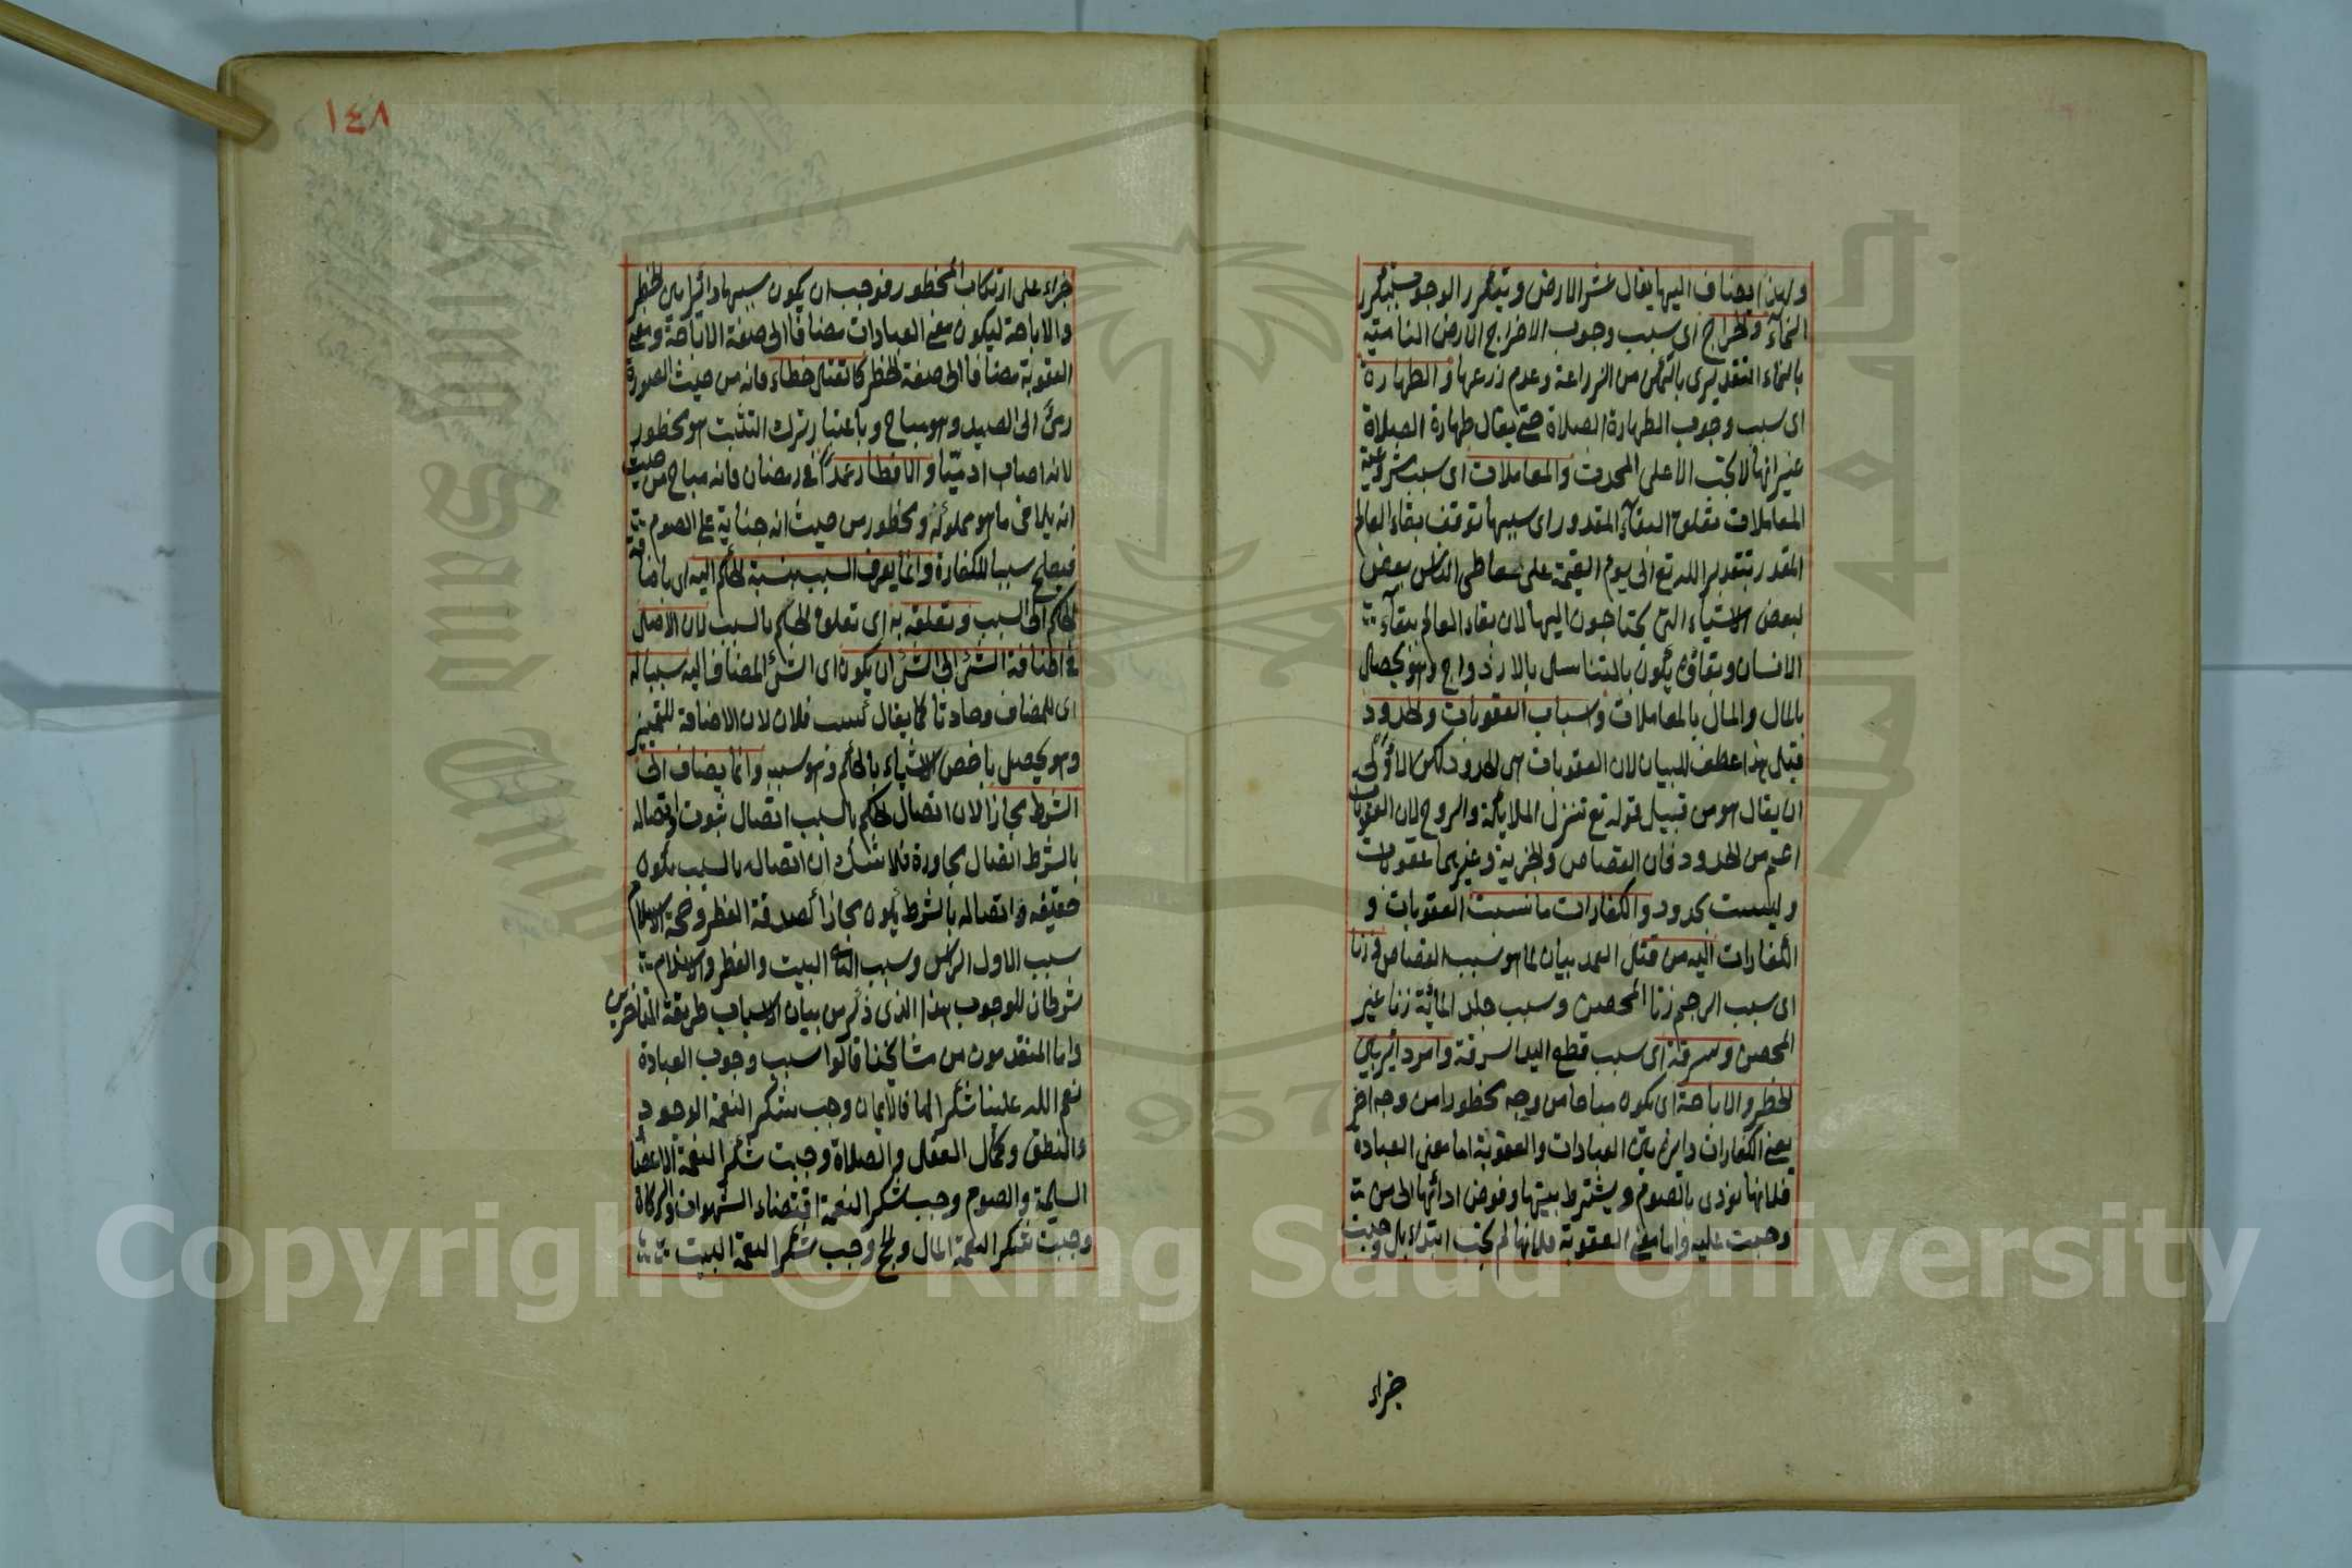 ولهذا يضاف اليها يقال عشر الارض ويتكرر الوجوب بتكرر
النماء والخراج اى سبب وجوب الاخراج الارض النامية
بالنماء التقديرى بالتمكن من الزراعة وعدم زرعها والطهارة
اى سبب وجوب الطهارة الصلاة حتى يقال طهارة الصلاة
غير انها لا تجب الا على المحدث والمعاملات اى سبب شروعية
المعاملات تعلق البقاء المقدور اى سببها توقف بقاء العالم
المقدر بتقدير الله تع الى يوم القيمة على تعاطى الناس بعض
لبعض الاشياء التى يحتاجون اليها لان بقاء العالم ببقاء
الانسان وبقاؤه يكون بالتناسل بالازدواج وهو يحصل
بالمال والمال بالمعاملات واسباب العقوبات والحدود
قيل هذا عطف للبيان لان العقوبات هى الحدود لكن الاولى
ان يقال هو من قبيل قوله تع تنزل الملائكة والروح لان العقوبات
اعم من الحدود فان القصاص والجزية وغيرهما عقوبات
وليست بحدود والكفارات ما نسبت العقوبات و
الكفارات اليه من قتل العمد بيان لما هو سبب القصاص وزنا
اى سبب الرجم زنا المحصن وسبب جلد المائة زنا غير
المحصن وسرقة اى سبب قطع اليد السرقة وامر دائر بين
الحظر والاباحة اى يكون مباحا من وجه محظورا من وجه اخر
يعنى الكفارات دائرة بين العبادات والعقوبة اما معنى العبادة
فلانها تؤدى بالصوم ويشترط نيتها وفوض ادائها الى من
وجبت عليه واما معنى العقوبة فلانها لم تجب ابتداء بل وجبت
جزاء
١٤٨
جزاء على ارتكاب المحظور فوجب ان يكون سببها دائرا بين الحظر
والاباحة ليكون معنى العبادات مضافا الى صفة الاباحة ومعنى
العقوبة مضافا الى صفة الحظر كالقتل خطاء فانه من حيث الصورة
رمى الى الصيد وهو مباح وباعتبار ترك التثبت هو محظور
لانه اصاب ادميا والافطار عمدا فى رمضان فانه مباح من حيث
انه يلاقى ما هو مملوكه ومحظور من حيث انه جناية على الصوم
فيصلح سببا للكفارة وانما يعرف السبب بنسبة الحكم اليه اى باضافة
الحكم الى السبب وتعلقه به اى تعلق الحكم بالسبب لان الاصل
فى اضافة الشئ الى الشئ ان يكون اى الشئ المضاف اليه سببا له
اى للمضاف وحادثا كما يقال كسب فلان لان الاضافة للتمييز
وهو يحصل باخص الاشياء بالحكم وهو سببه وانما يضاف الى
الشرط مجازا لان اتصال الحكم بالسبب اتصال ثبوت واتصاله
بالشرط اتصال مجاورة فلا شك ان اتصاله بالسبب يكون
حقيقة واتصاله بالشرط يكون مجازا كصدقة الفطر وحجة الاسلام
سبب الاول الراس وسبب الثانى البيت والفطر والاسلام
شرطان للوجوب هذا الذى ذكر من بيان الاسباب طريقة المتاخرين
واما المتقدمون من مشايخنا قالوا سبب وجوب العبادة
نعم الله علينا شكرا لها فالايمان وجب شكرا لنعمة الوجود
والنطق وكمال العقل والصلاة وجبت شكرا لنعمة الاعضاء
السليمة والصوم وجب شكرا لنعمة اقتضاء الشهوات والزكاة
وجبت شكرا لنعمة المال والحج وجب شكرا لنعمة البيت
Copyright © King Saud University
957